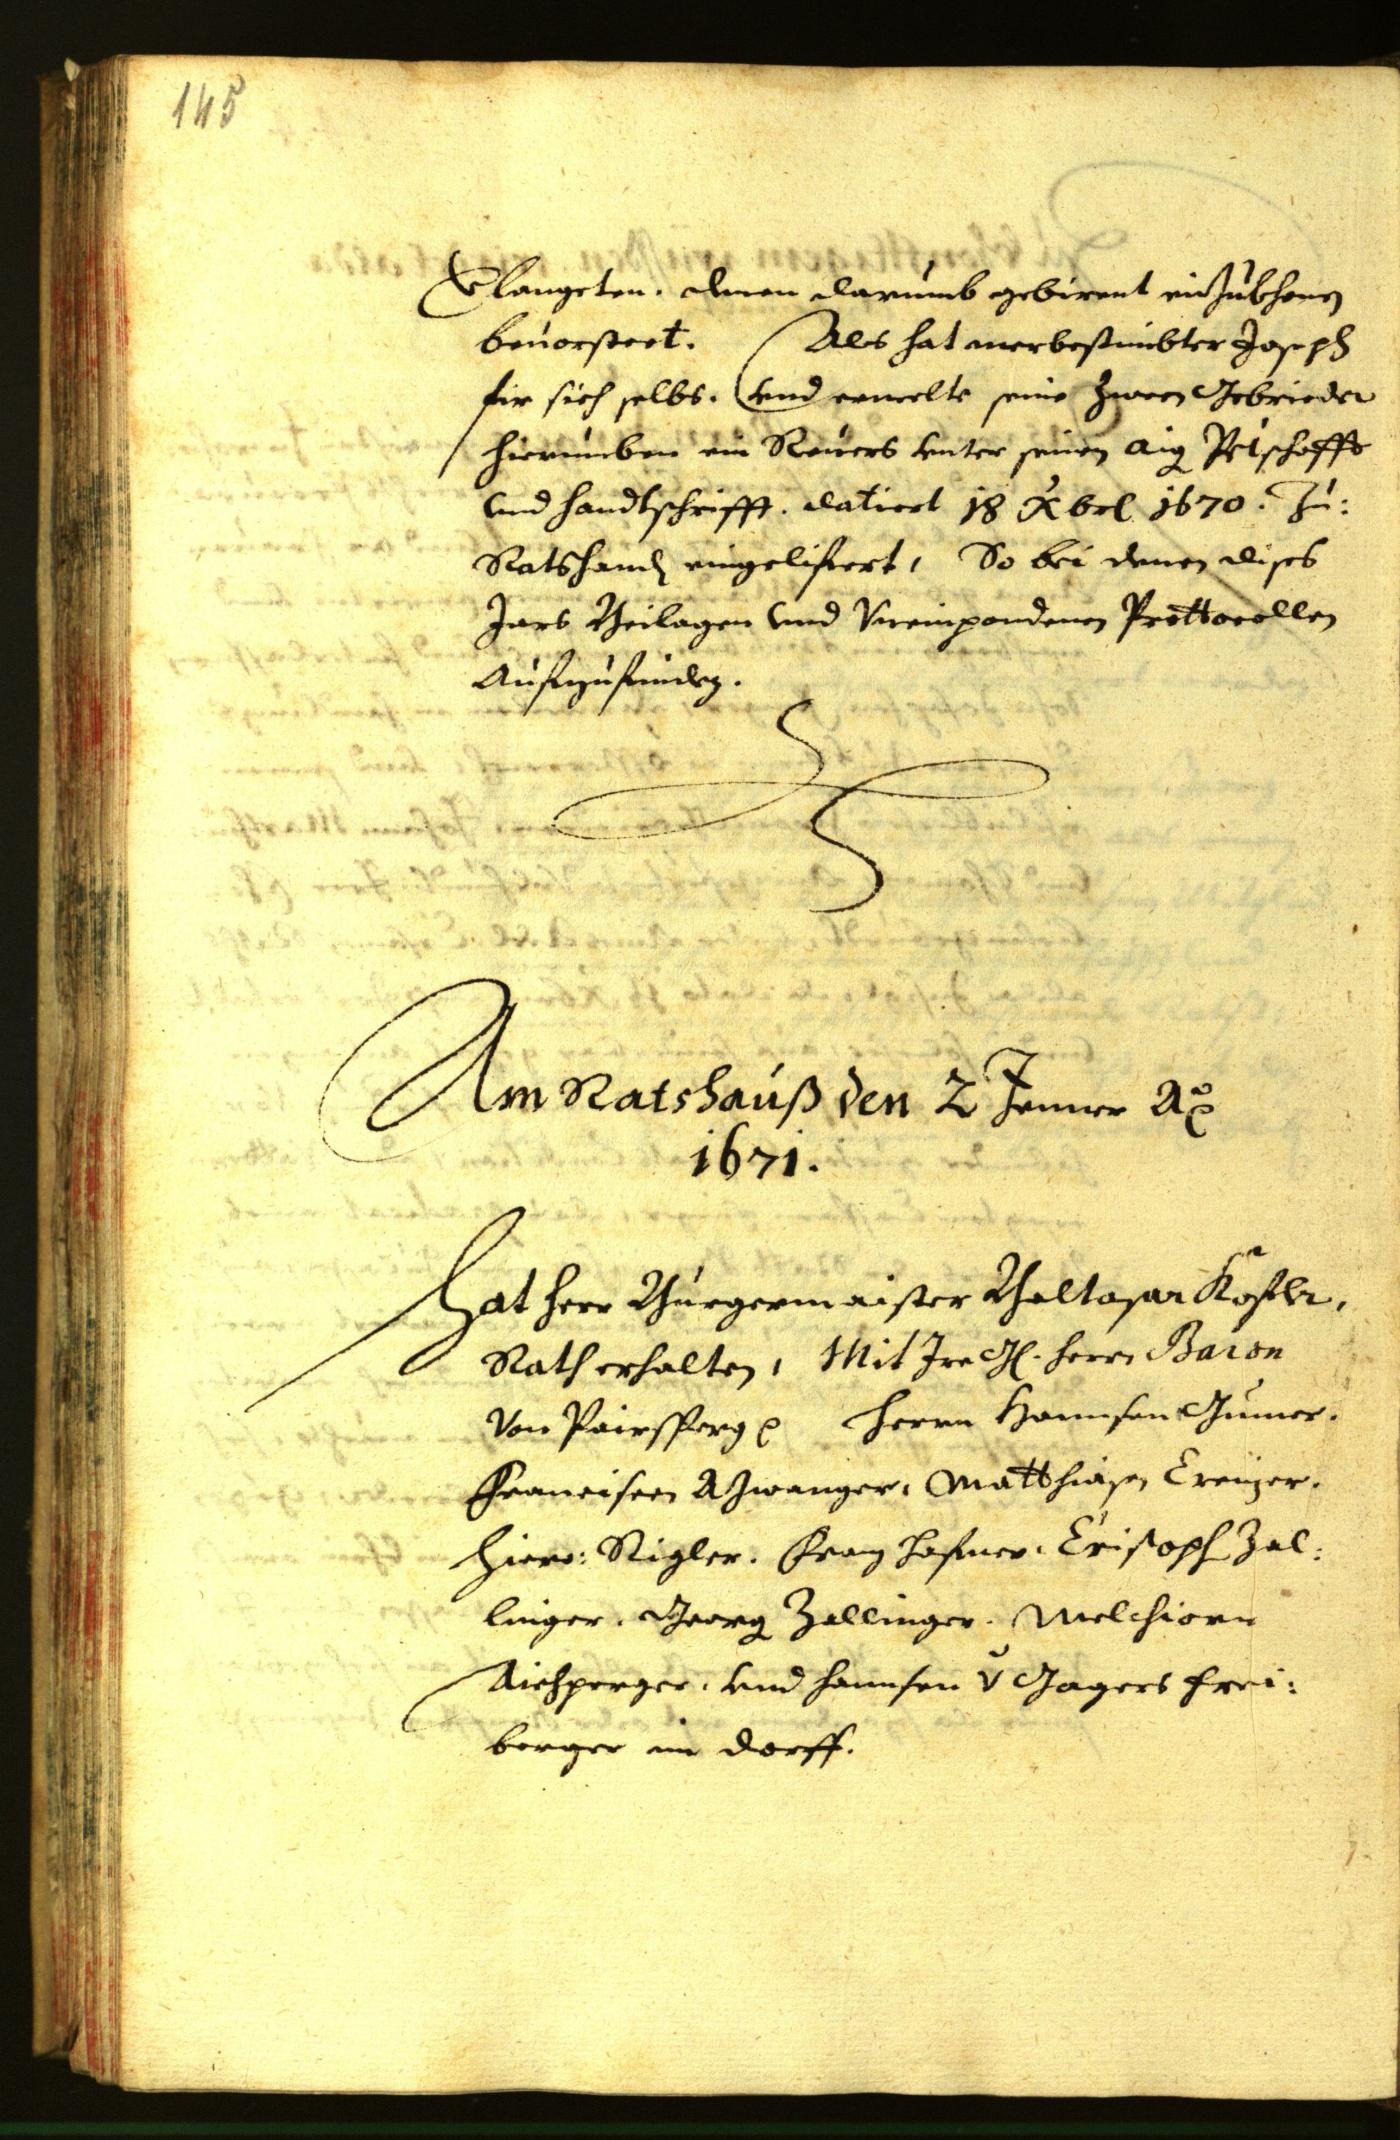 145
Erlangeten. denen darumb gebirent einzukhomen
beuorsteet. Als hat merbestimbter Joseph
für sich selbs. vnd ermelte seine zween Gebrieder
hierumben ein Reuers vnter seinen aig Petschafft
vnd handtschrifft. datiert 18 Xbrl 1670. Zu:
Ratshand eingelifert, So bei denen dises
Jars Beilagen vnd Prottocollen
Aufzufinden.
Am Ratshauß den 2 Jenner Ao
1671.
Hat herr Burgermaister Balthasar Kofler,
Rath erhalten, Mit Ire Gl. herrn Baron
von Pairsperg herrn Hannsen Gumer.
Francisen Azwanger, Matthiasen Creuzer.
Hiero: Rigler. Franz Hafner. Cristoph Zal:
linger. Georg Zallinger. Melchiorn
Aichperger. vnd hannsen v Jagers frei:
berger im dorff.